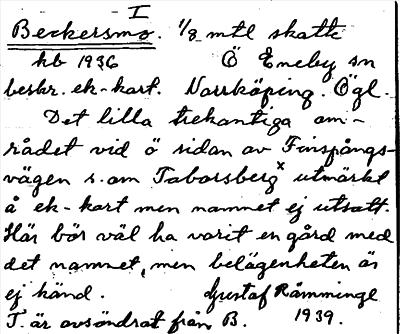 I
Beckersmo. 1/8 mtl skatte
kb 1936 Ö Eneby sn
beskr. ek-kart. Norrköping. Ögl.
Det lilla trekantiga om-
rådet vid ö sidan av Finspångs-
vägen s.om Taborsberg x utmärkt
å ek-kart men namnet ej utsatt.
Här bör väl ha varit en gård med
det namnet, men belägenheten är
ej känd. Gustaf Råmminge
T. är avsöndrat från B. 1939.